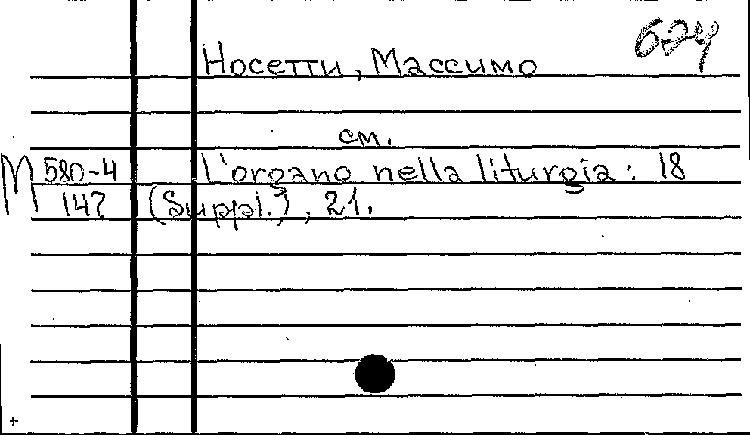 624
Носетти, Массимо
см.
М 580-4 L'organo nella liturgia: 18
147 (Suppl.), 21.